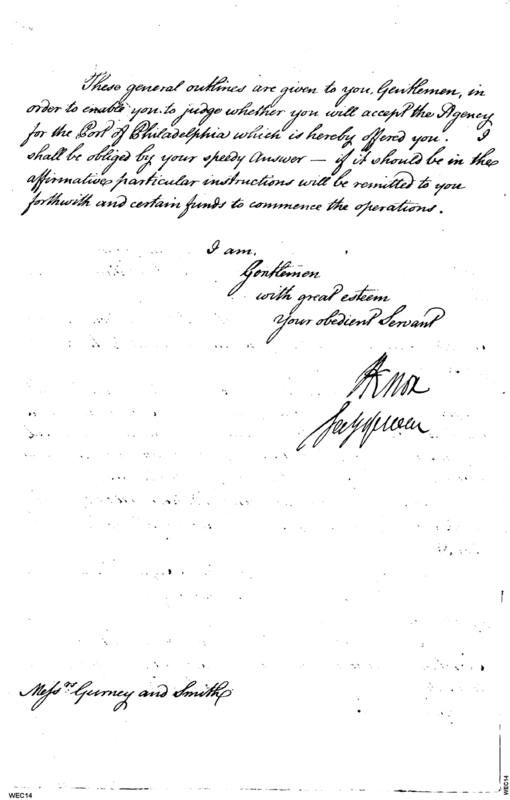 These general outlines are given to you, Gentlemen, in
order to enable you to judge whether you will accept the Agency
for the Port of Philadelphia which is hereby offered you. I
shall be obliged by your speedy Answer — if it should be in the
affirmative particular instructions will be remitted to you
forthwith and certain funds to commence the operations.
I am.
Gentlemen
with great esteem
Your obedient Servant
HKnox
Secy of war
Messrs. Gurney and Smith
WEC14
WEC14